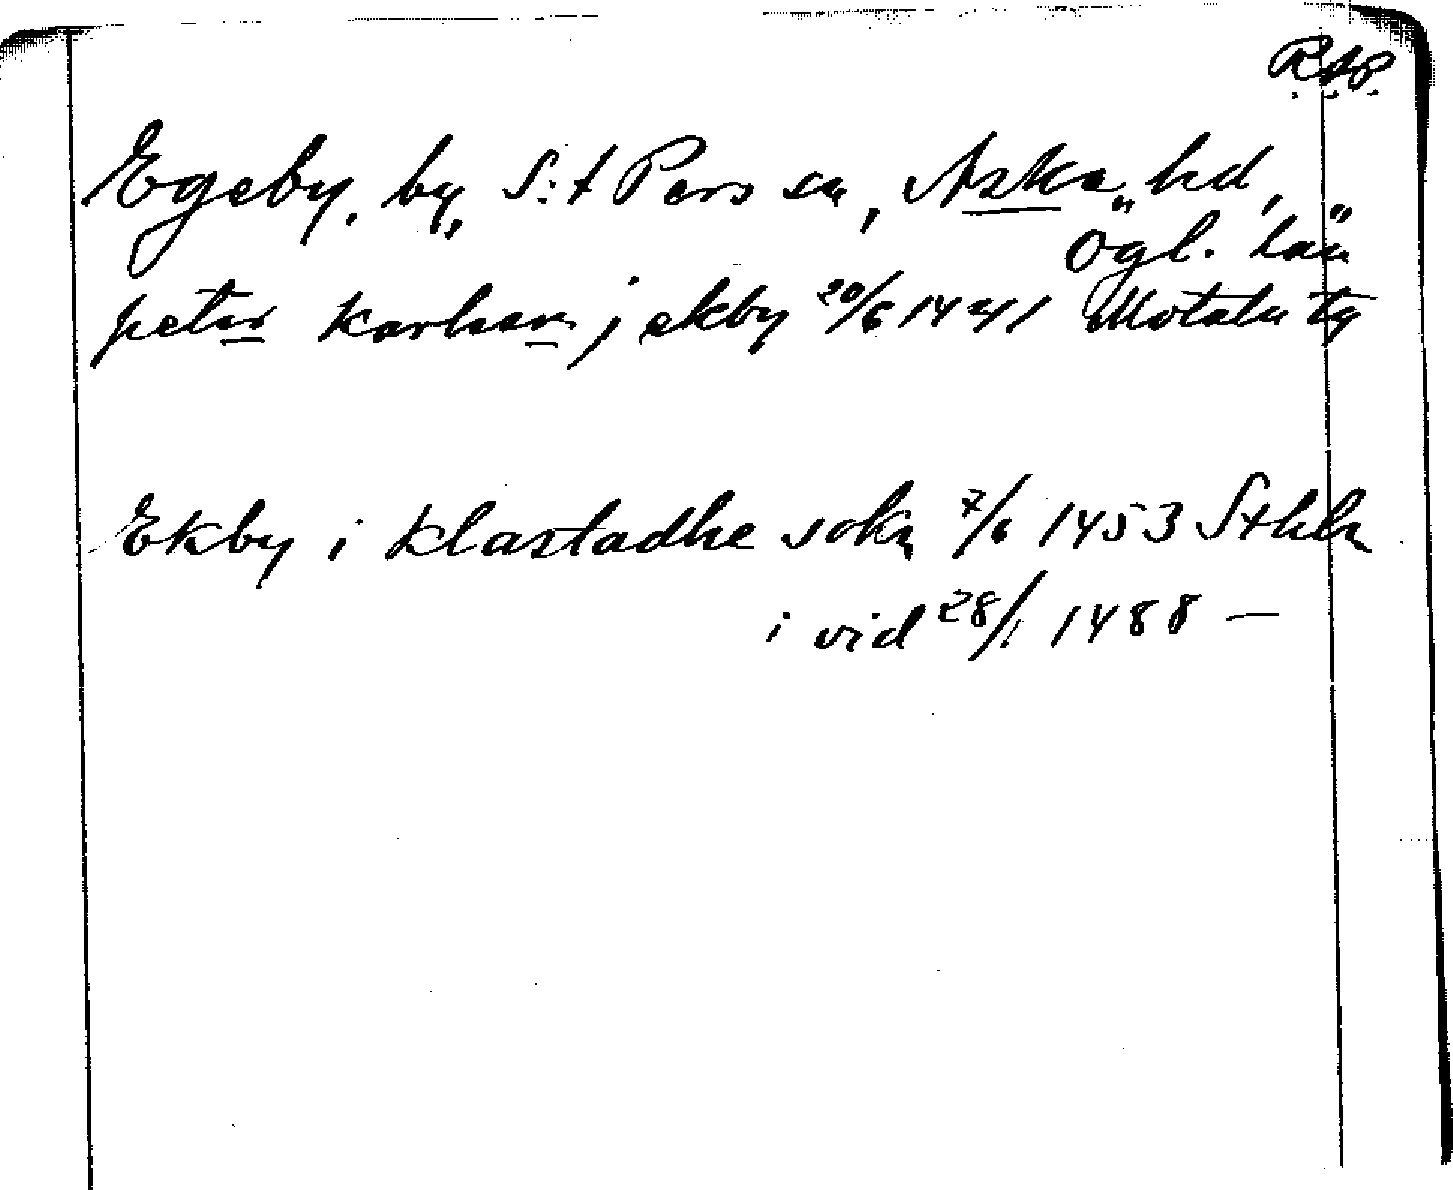 R.A.P.
Egeby, by, S:t Pers sn, Aska hd,
Ögl. län
peter karlson j ekby 20/6 1441 Motala tg
Ekby i klastadhe sokn 7/6 1453 Sthlm
i vid 28/1 1488 —